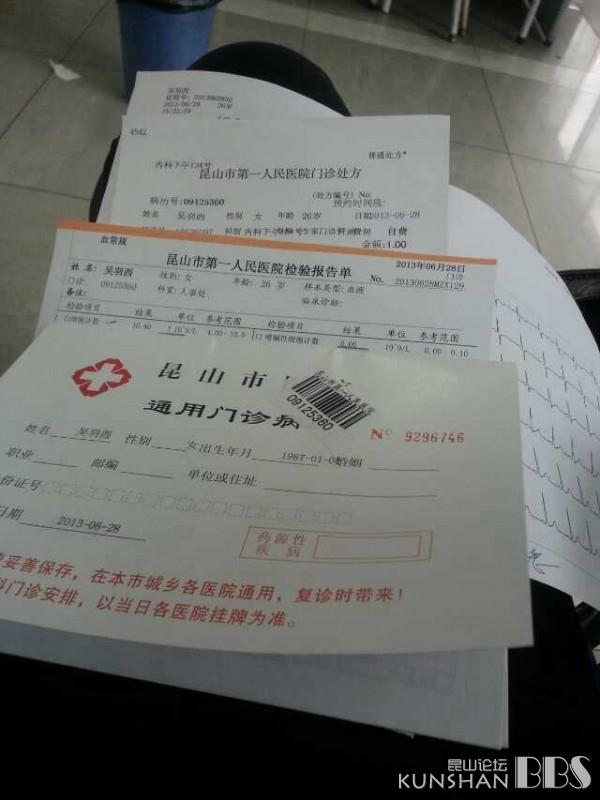 吴羽西
2013/06/28 26岁
4542
普通处方*
内科下午124号
昆山市第一人民医院门诊处方
(处方编号) No:
病历号:09125360
预约时间段:
姓名 吴羽西 性别 女 年龄 26岁 日期2013-06-28
科别 内科下午 费别 自费
金额:1.00
血常规
昆山市第一人民医院检验报告单
2013年06月28日
姓名: 吴羽西 性别: 女 年龄: 26 岁 样本类型: 血液 No. 20130628MZX1129
门诊 09125360 科室: 人事处 临床诊断:
备注:
检验项目 结果 单位 参考范围 检验项目 结果 单位 参考范围
白细胞计数 10.40 *10^9/L 4.00-10.0 12 嗜碱性细胞计数 0.00 10^9/L 0.00-0.10
昆山市
通用门诊病
09125360
No 9296746
姓名 吴羽西 性别 女 出生年月 1987-01-0 婚姻
职业 邮编 单位或住址
份证号
日期 2013-06-28
药源性
疾病
妥善保存，在本市城乡各医院通用，复诊时带来！
门诊安排，以当日各医院挂牌为准。
昆山论坛
KUNSHAN BBS